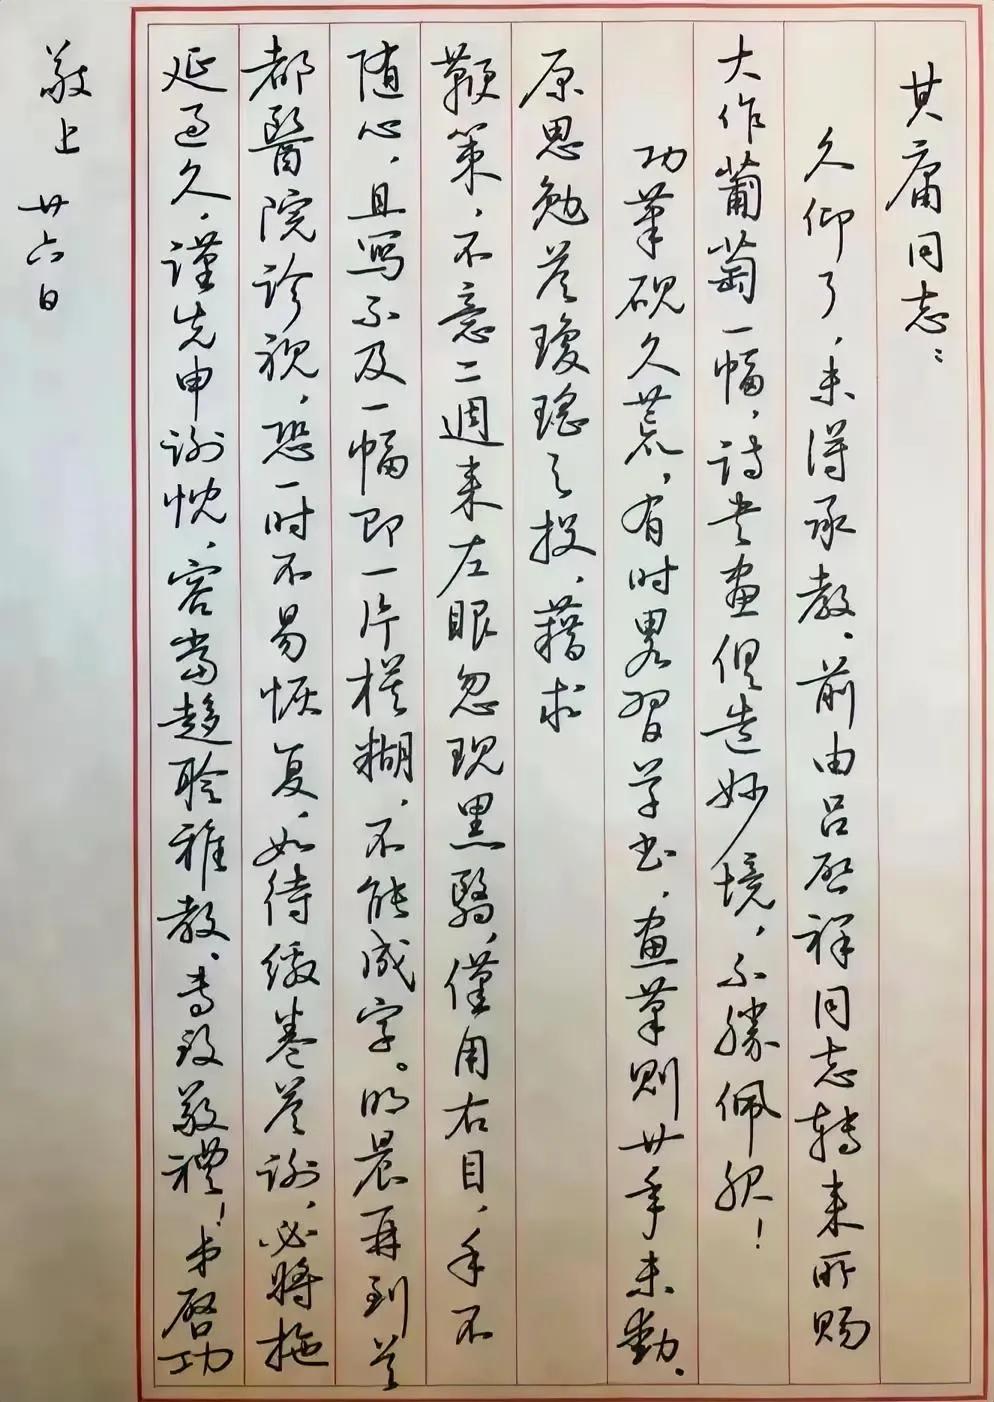 其庸同志：
久仰了，未得承教。前由吕啟祥同志转来所赐
大作葡萄一幅，诗书画俱造妙境，不勝佩服！
功笔砚久荒，有时畧習学书，画筆则廿年未動。
原思勉答瓊瑤之投，藉求
鞭策，不意二週来左眼忽现黑翳，僅用右目，手不
随心，且写不及一幅即一片模糊，不能成字。明晨再到首
都醫院诊视，恐一时不易恢复，如待缴卷答谢，必将拖
延过久，谨先申谢忱，容當趋聆雅教，专致敬禮！弟启功
敬上 廿六日